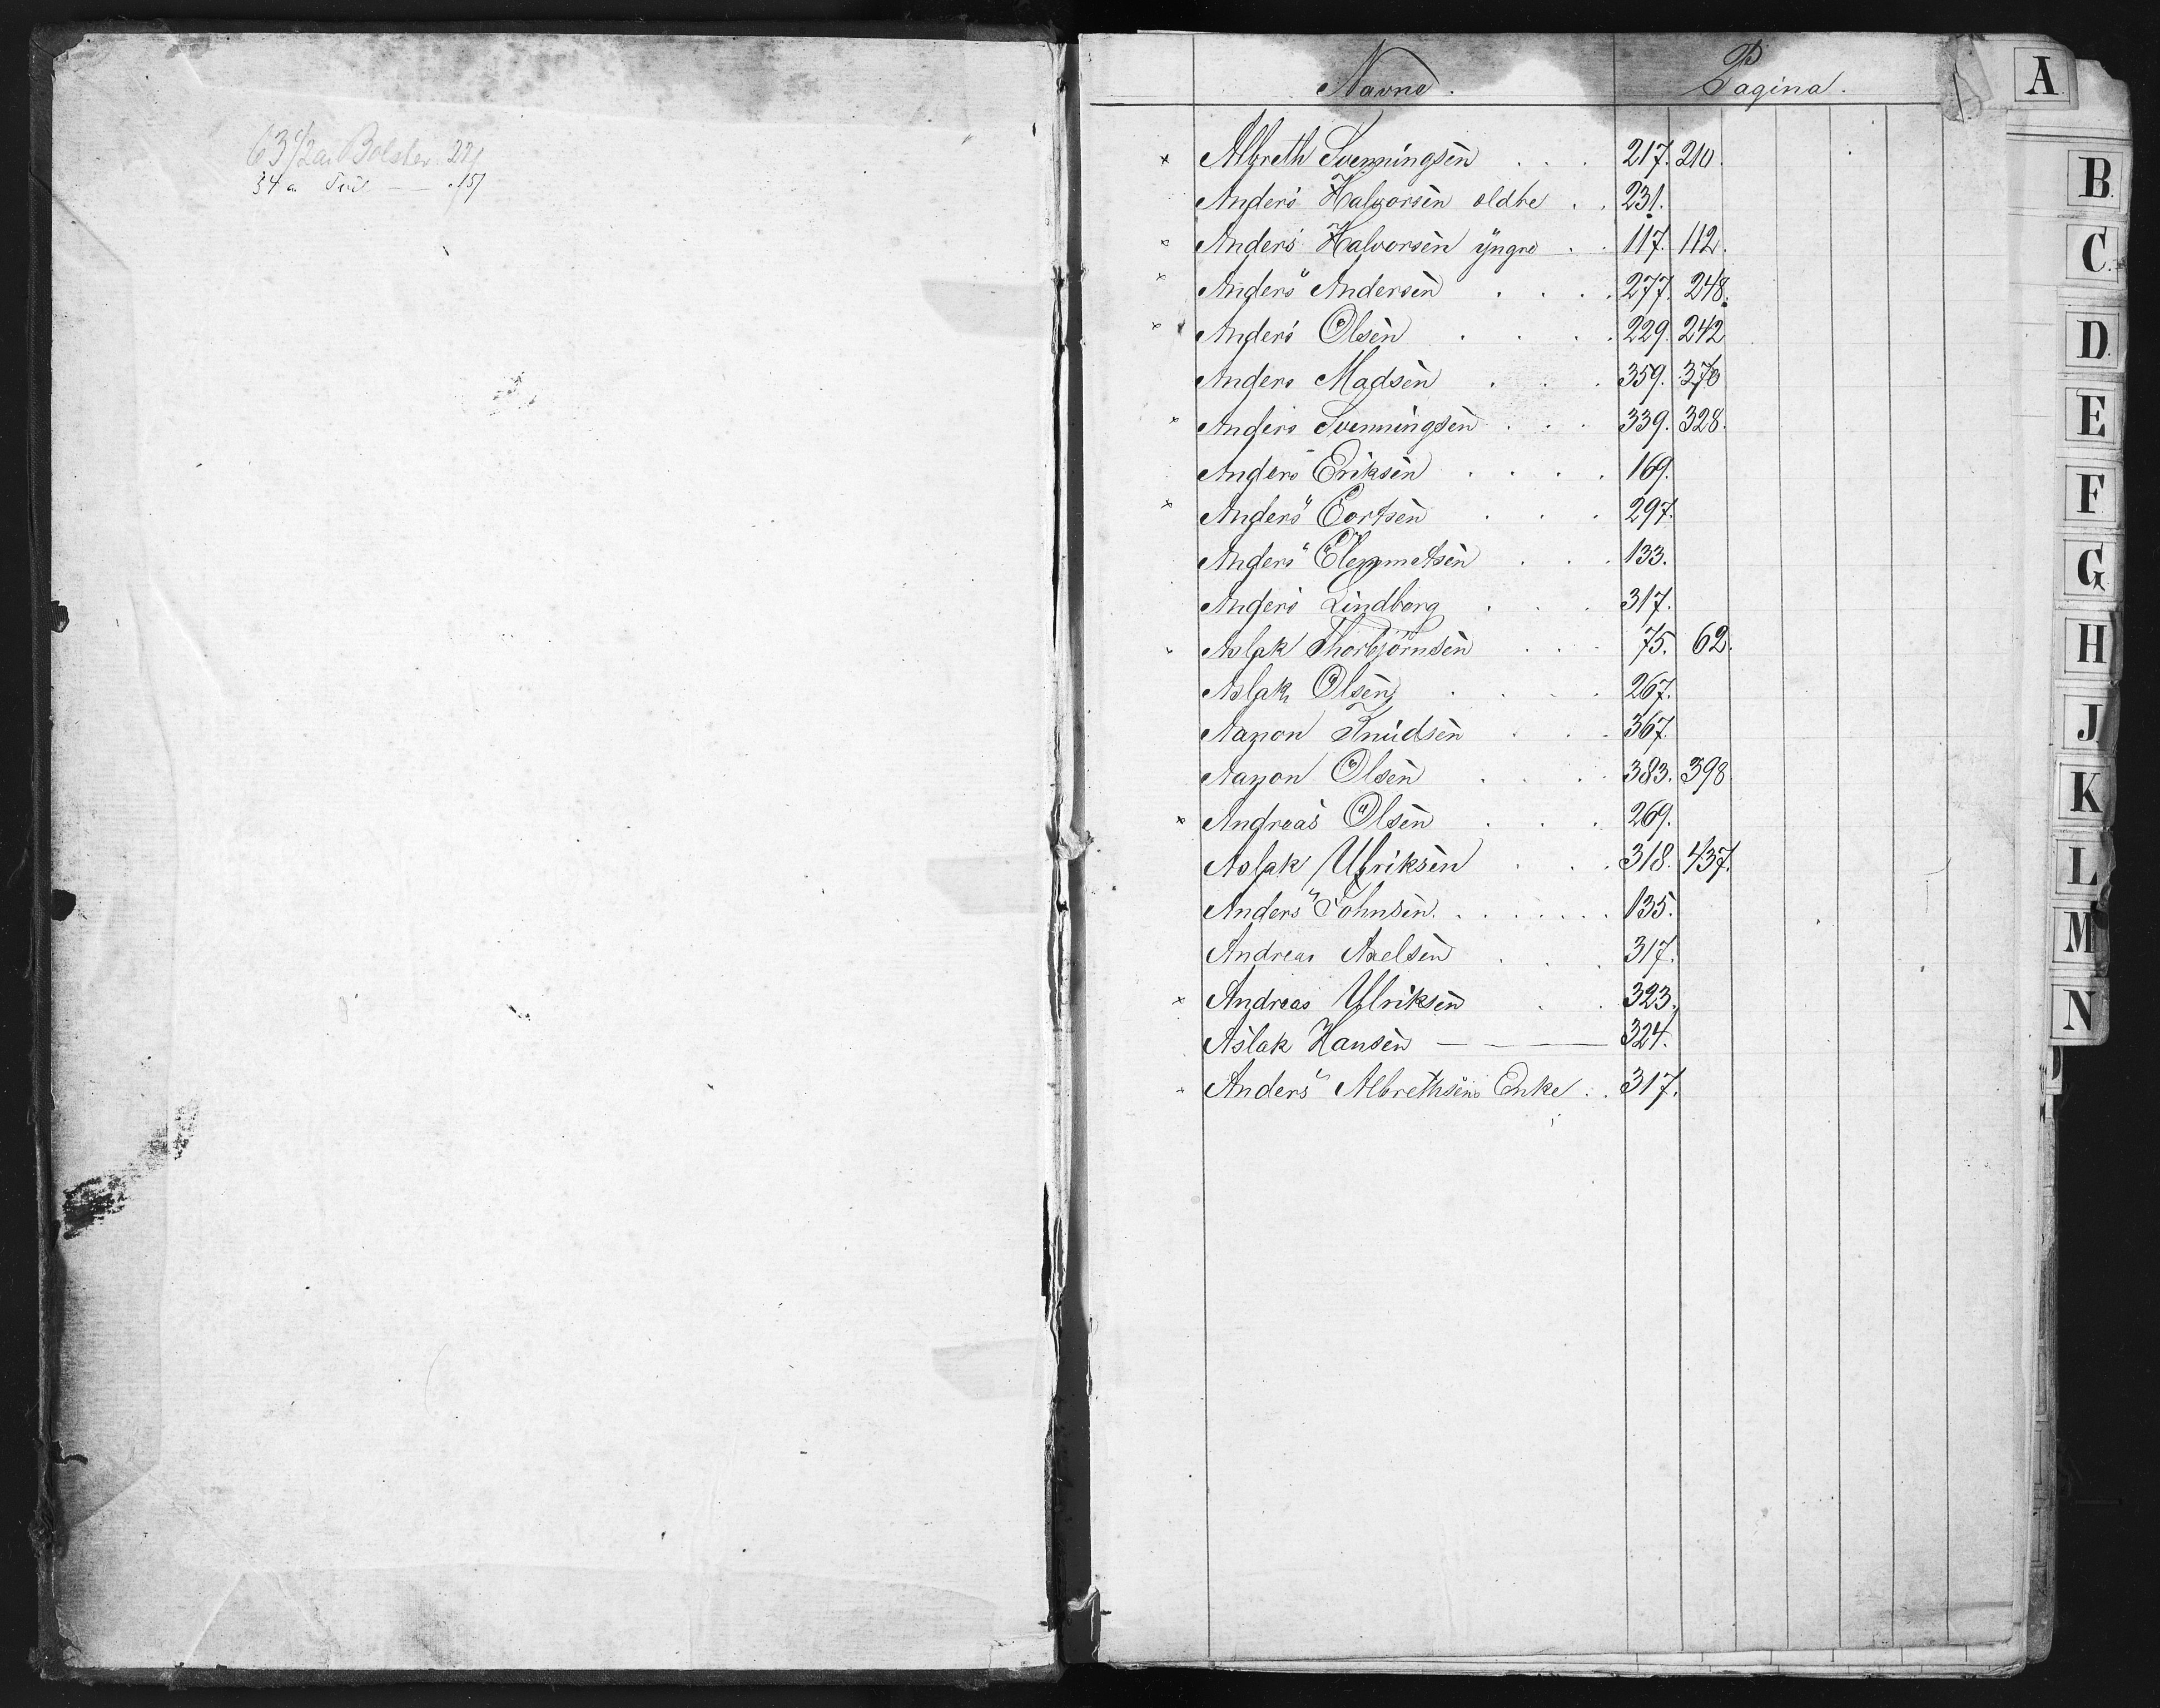 63 1/2 a. Bolster 22/
34 a — — 15/
Navne. Pagina.
x Albreth Svenningsen . . . 217. 210.
Anders Halvorsen oldre . . 231.
x Anders Halvorsen yngre . . 117. 112.
x Anders Andersen . . . . 277. 248.
x Anders Olsen . . . . 229. 242
Anders Madsen . . . 359. 370
x Anders Svenningsen . . . 339. 328.
Anders Eriksen . . . . 169.
x Anders Eortsen . . . 297.
Anders Clemmetsen . . . 133.
Anders Lindberg . . . 317.
Aslak Thorbjörnsen . . . 75. 62.
Aslak Olsen . . . . 267.
Aanon Knudsen . . . 367.
Aanon Olsen . . . . 383. 398
x Andreas Olsen . . . 269.
Aslak Ulriksen . . . 318. 437.
Anders Johnsen . . . . . . . 135.
Andreas Axelsen . . . 317.
x Andreas Ulriksen . . 323.
Aslak Hansen — — — 324.
Anders Albrethsens Enke . . 317.
A
B.
C.
D.
E
F
G
H
J.
K
L
M
N